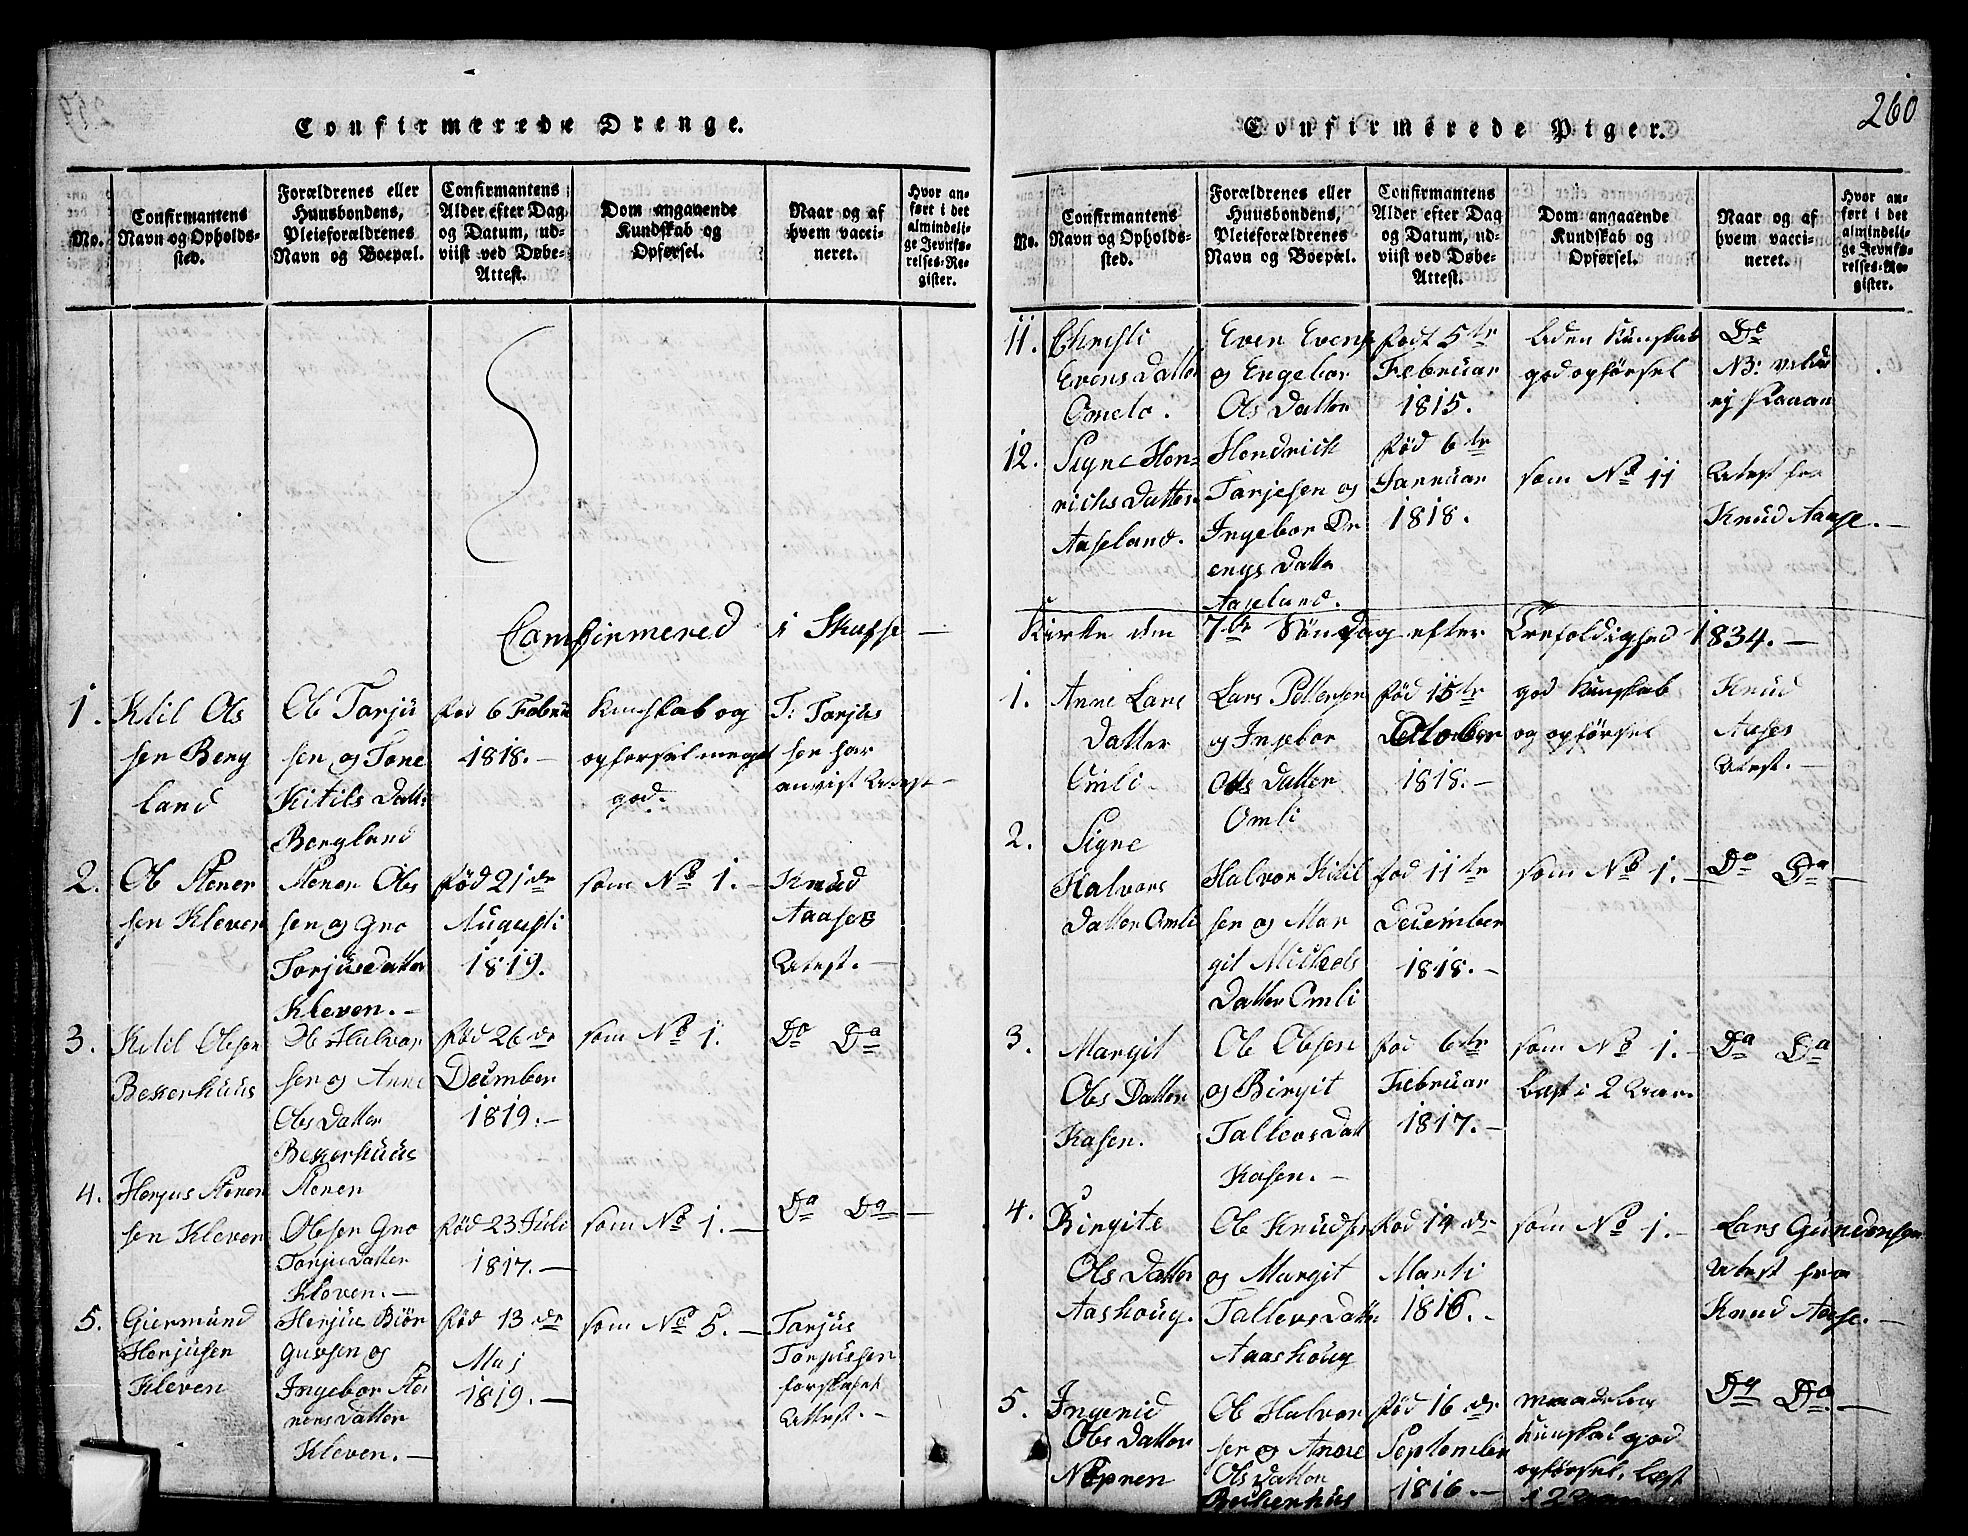 Confirmerede Drenge.
No.
Confirmantens
Navn og Opholds-
sted.
Forældrenes eller
Huusbondens,
Pleieforældrenes
Navn og Boepæl.
Confirmantens
Alder efter Dag
og Datum, ud-
viist ved Døbe-
Attest.
Dom angaaende
Kundskab og
Opførsel.
Naar og af
hvem vacci-
neret.
Hvor an-
ført i det
almindeli-
ge Jevnfø-
relses-Re-
gister.
Confirmered i Skafse
1.
Kitil Ols
sen Berg
land
Ole Tarju
sen og Tone
Kitils Datter
Bergland
fød 6 Februar
1818.
Kunskab og
opførsel meget
god.
T: Tarjus
sen har
anvist Attest
2.
Ole Stener
sen Kleven
Stener Ols
sen og Gro
Torjusdatter
Kleven.
fød 21de
Augusti
1819.
som No 1.
Knud
Aases
Attest.
3.
Kitil Olsen
Bekerhuus
Ole Halvor
sen og Anne
Ols Datter
Bekerhuus
fød 26de
December
1819.
som No 1.
Do Do
4.
Herjus Stener
sen Kleven
Stener
Olesen Gro
Tarjudatter
Kleven.
fød 23 Juli
1817.
som No 1.
Do Do
5.
Giermund
Herjusen
Kleven
Herjus Biør
gufsen og
Ingebor Ste
nersdatter
Kleven.
fød 13de
Maj
1819.
som No 5.
Tarjus
Torjussen
forskafet
Attest.
260
Confirmerede Piger.
No.
Confirmantens
Navn og Opholds-
sted.
Forældrenes eller
Huusbondens,
Pleieforældrenes
Navn og Boepæl.
Confirmantens
Alder efter Dag
og Datum, ud-
viist ved Døbe-
Attest.
Dom angaaende
Kundskab og
Opførsel.
Naar og af
hvem vacci-
neret.
Hvor an-
ført i det
almindeli-
ge Jevnfø-
relses-Re-
gister.
11.
Christi
Evens Datter
Ometo.
Even Evens
og Engebor
Ols Datter
født 5te
Februar
1815.
Liden Kunskab
god opførsel
Do
NB:
12.
Signe Hen-
richs Datter
Aaseland.
Hendrich
Tarjesen og
Ingebor Dr
engs Datter
Aaseland.
fød 6te
Januar
1818.
som No 11
Attest fra
Knud Aase.
Kirke den 7de Søndag efter Trefoldighed 1834.
1.
Anne Lars
Datter
Omli
Lars Pettersen
og Ingebor
Ols Datter
Omli
fød 15te
October
1818.
god Kunskab
og opførsel
Knud
Aases
Attest.
2.
Signe
Halvors
Datter Omli
Halvor Kitil
sen og Mar
git Mickels
Datter Omli
fød 11te
December
1818.
som No 1.
Do Do
3.
Margit
Ols Datter
Kasen.
Ole Olsen
og Birgit
Tallevs Datt
Kasen.
fød 6te
Februar
1817.
som No 1.
læst i 2 Aar.
Do Do
4.
Birgite
Ols Datter
Aashoug.
Ole Knudsen
og Margit
Tallevs Datter
Aashoug
fød 14de
Marti
1816.
som No 1.
Lars Gundersen
Attest fra
Knud Aase.
5.
Ingerid
Ols Datter
Nepren
Ole Halvor
sen og Anne
Ols Datter
Beckerhus
fød 16de
September
1816.
maadelig
Kunskab god
opførsel, læst
i 2 Aar
Do Do